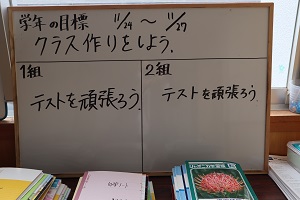 学年の目標 11/24 〜 11/27
クラス作りをしよう.
1組
テストを頑張ろう.
2組
テストを頑張ろう.